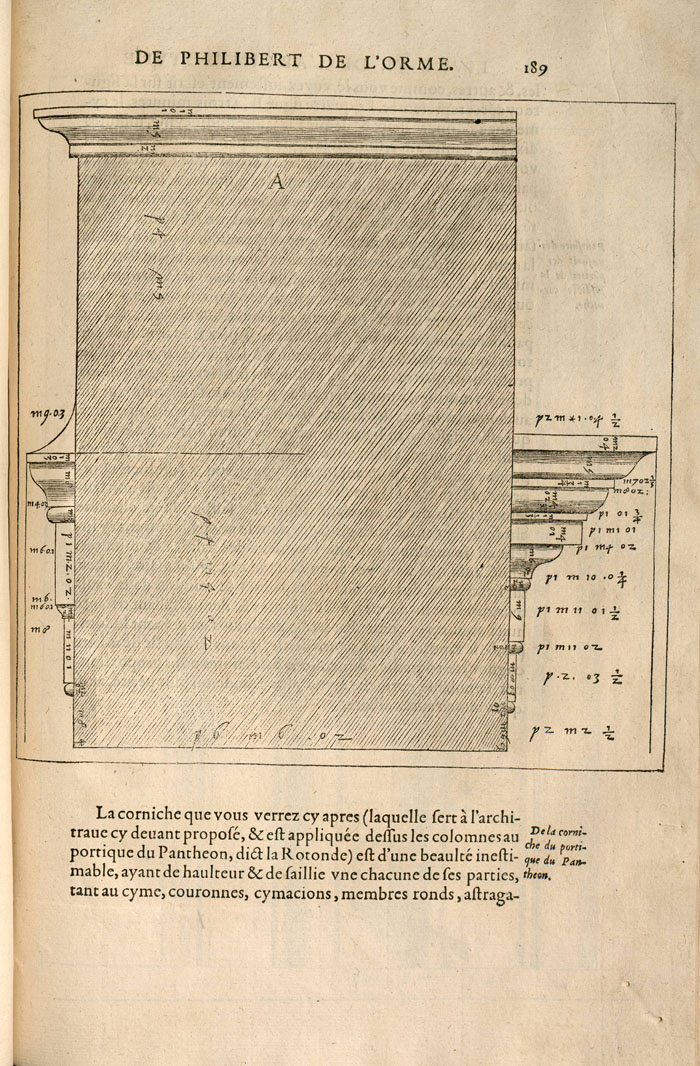 DE PHILIBERT DE L'ORME. 189
A
p4 m5
m9.03
m4.02
m6.02
m6.
m8
p1 m2.02
p9 m9 .02
p1 m1 01
p1 m4 02
p1 m 10 .0 3/4
p1 m 11 01 1/2
p1 m11 02
p.2. 03 1/2
p2 m2 1/2
La corniche que vous verrez cy apres (laquelle sert à l'archi-
traue cy deuant proposé, & est appliquée dessus les colomnes au
portique du Pantheon, dict la Rotonde) est d'une beaulté inesti-
mable, ayant de haulteur & de saillie vne chacune de ses parties,
tant au cyme, couronnes, cymacions, membres ronds, astraga-
De la corni-
che du porti-
que du Pan-
theon.